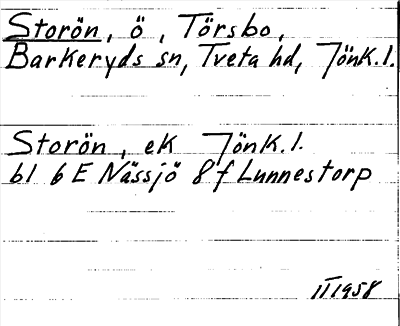 Storön, ö, Törsbo,
Barkeryds sn, Tveta hd, Jönk. l.
Storön, ek Jönk. l.
bl 6 E Nässjö 8 f Lunnestorp
II 1958